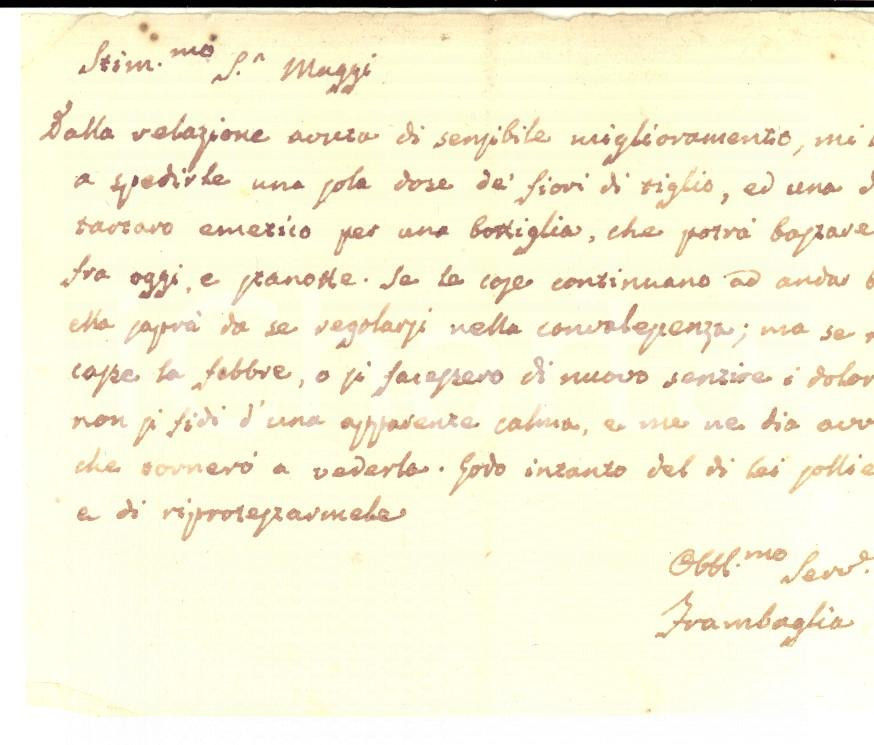 Stim.mo S.r Maggi
Dalla relazione avuta di sensibile miglioramento, mi
a spedirle una sola dose de' fiori di tiglio, ed una d
tartaro emetico per una bottiglia, che potrà bastare
fra oggi, e stanotte. Se le cose continuano ad andar b
ella saprà da se regolarsi nella convalescenza; ma se
casse la febbre, o si facessero di nuovo sentire i dolor
non si fidi d'una apparente calma, e me ne dia avv
che tornerò a vederla. Godo intanto del di lei sollie
e di riprotestarmele
Obbl.mo Serv.e
Frambaglia